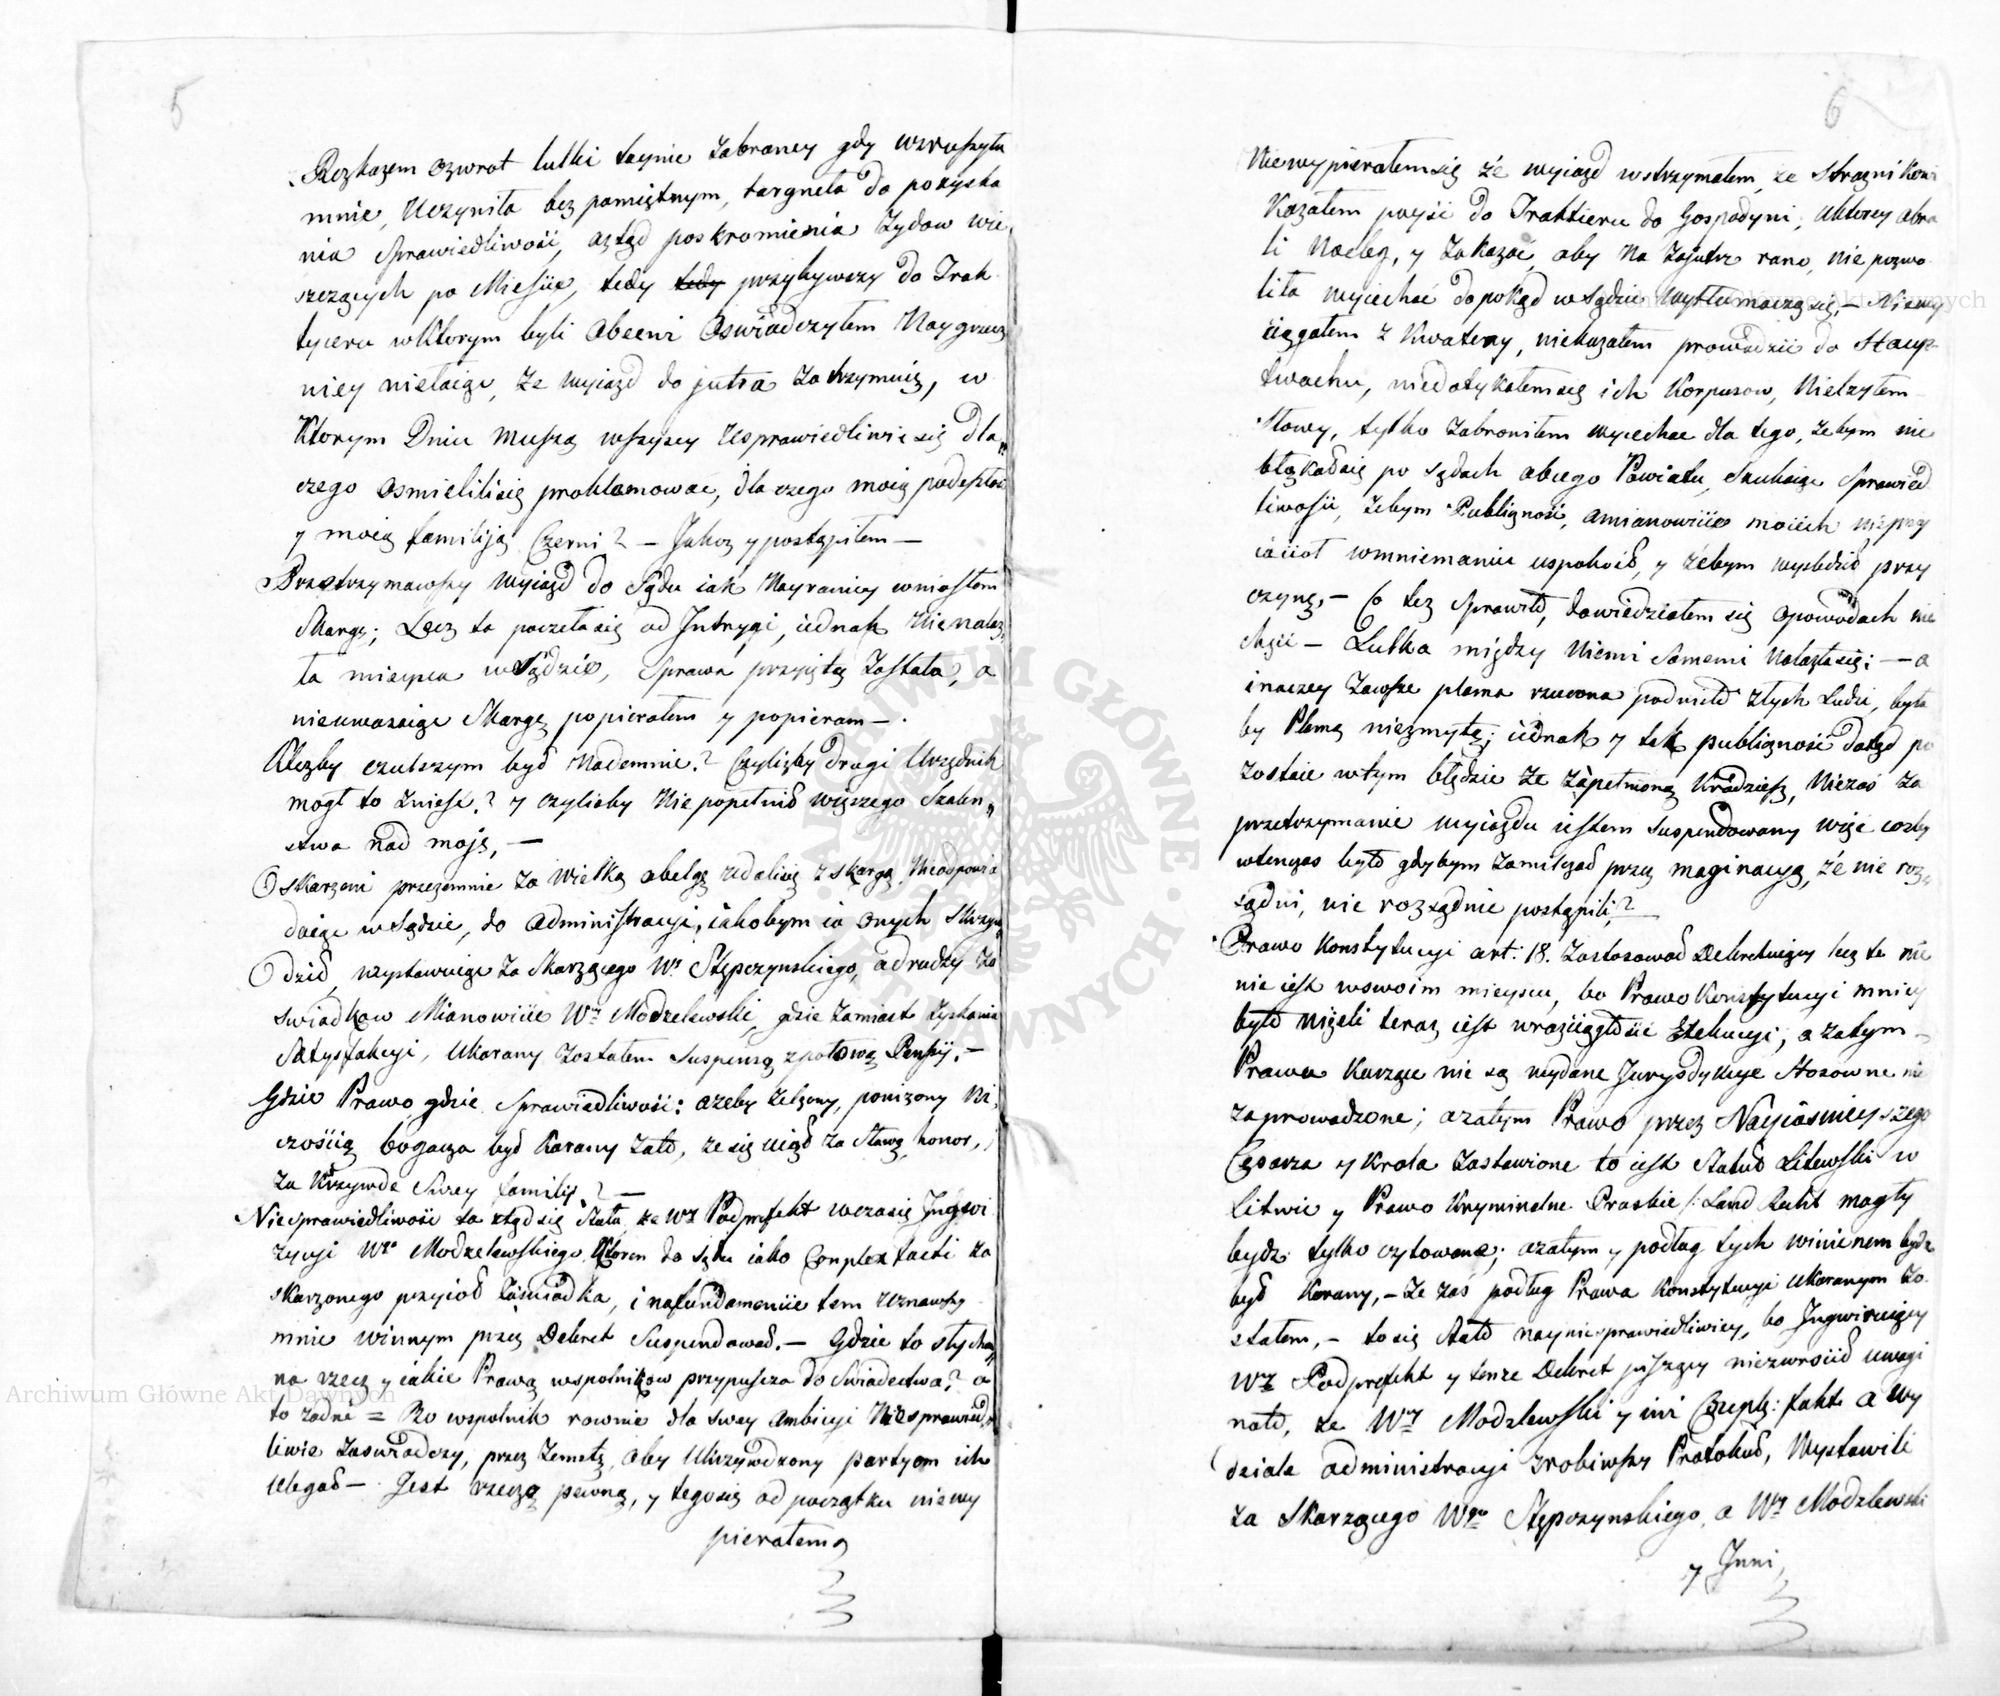 5
Rozkazem o zwrot lulki taynie zabraney gdy wzruszyła
mnie, Uczyniła bez pamiętnym, targneła do pozyska
nia Sprawiedliwość, a ztąd poskromienia Zydow wie
szczących po Mieście, tedy tedy przybywszy do Trak
tyeru w Ktorym byli Obecni Oswiadczyłem Nay grzecz
niey nie łaiąc, że wyiazd do jutra zatrzymuię, w
Ktorym Dniu muszą wszyscy Usprawiedliwic się dla
czego Osmielilisię proklamowac, dla czego moię
y moię familiją Czerni? — Jakoz y postąpiłem —
Przetrzymawszy wyiazd do Sądu iak Nayraniey wniosłem
Skargę; Lecz ta poczeła się od Intrygi, iednak Nie nalaz
ła mieysca w Sądzie, Sprawa przyięta Została, a
nieuwazaiąc Skargę popierałem y popieram —
Ktozby czulszym był Nademnie? Czylizby drugi Urzędnik
mogł to znieść? y czyliby Nie popełnił większego Szalen
stwa nad moje, —
Oskarzeni przezemnie za wielką obelgę udalisię z skargą Nieodpowia
daiąc w Sądzie, do Administracyi, iakobym ia onych Skrzyw
dził, wystawuiąc za Skarzącego Wo Stępczynskiego, a drudzy za
swiadkow Mianowicie Wny Modzelewski, gdzie zamiast zyskania
Satysfakcyi, Ukarany Zostałem Suspensą z połową Pensyi. —
Gdzie Prawo, gdzie Sprawiedliwość: azeby zelzony, ponizony Ni
czością bogacza był Karany zato, ze się uiął za Sławę, honor,
za Krzywde Swey familij? —
Niesprawiedliwość ta ztąd się Stała, ze Wny Podprefekt w czasie Inkwi
zycyi Wgo Modzelewskiego Ktoren do Sądu iako Complex facti za
skarzonego przyioł za Swiadka, i na fundamencie tem Uznawszy
mnie winnym przez Dekret Suspendował. — Gdzie to Słycha
na rzecz y iakie Prawa wspolnikow przypuscza do Swiadectwa? o
to zadne = Bo wspolnik rownie dla swey Ambicyi Niesprawied
liwie Zaswiadczy, przez Zemstę, aby Ukrzywdzony partyom ich
ulegał — Jest rzeczą pewną, y tegosię od początku niewy
pierałem,
6
Niewypierałemsię że wyiazd wstrzymałem, ze Straznikowi
Kazałem pojść do Traktieru do Gospodyni, Uktorey obra
li Nocleg, y zakazać, aby na Zajutrz rano, nie pozwo
liła wyiechać dopokąd w Sądzie Wytłumaczą się, — Niewy
ciągałem z Kwatery, niekazałem prowadzić do Haup
twachu, niedotykałemsię ich Korpusow, Nielzyłem
Słowy, tylko zabroniłem wyiechac dla tego, zebym nie
błąkałsię po Sądach obcego Powiatu, Szukaiąc Sprawied
liwości, zebym Publicznosć, a mianowicie moiich nieprzy
iacioł w mniemaniu uspokoił, y żebym wysledził przy
czynę, — Co tez Sprawiło, dowiedziałem się o powodach nie
chęci — Lulka między Niemi Samemi Nalazłasię; — a
inaczey zawsze plama rzucona podnietą złych Ludzi, była
by Plamą niezmytą; iednak y tak publiczność dotąd po
zostaie w tym błędzie ze zapełnioną Kradzież, Niezaś za
przetrzymanie wyiazdu iestem Suspendowany więc cozby
wtenczas było gdybym zamilczał przez maginacyą, że nie roz
sądni, nie rozsądnie postąpili?
Prawo Konstytucyi art: 18. Zastosował Dekretuiący lecz te nie
nie iest w swoim mieyscu, bo Prawo Konstytucyi mniey
było niżeli teraz iest w rościągłości Exekucyi; a zatym
Prawa Karzące nie są wydane Juryzdykcye Stosowne nie
zaprowadzone; azatym Prawo przez Nayiasnieyszego
Cesarza y Krola Zostawione to iest Statut Litewski w
Litwie y Prawo Kryminalne Pruskie /: Land Recht mogły
bydz tylko cytowane; azatym y podług tych winienem bydz
był Karany, — Ze zaś podług Prawa Konstytucyi Ukaranym zo
stałem, — to się Stało nayniesprawiedliwiey, bo Inkwiruiący
Wny Podprefekt y tenze Dekret piszący niezwrócił uwagi
nato, ze Wny Modzlewski y inni Compl: fakt a wy
dziale Administracyi zrobiwszy Protokuł, Wystawili
za Skarzącego Wgo Stępczynskiego, a Wny Modzlewski
y Inni,